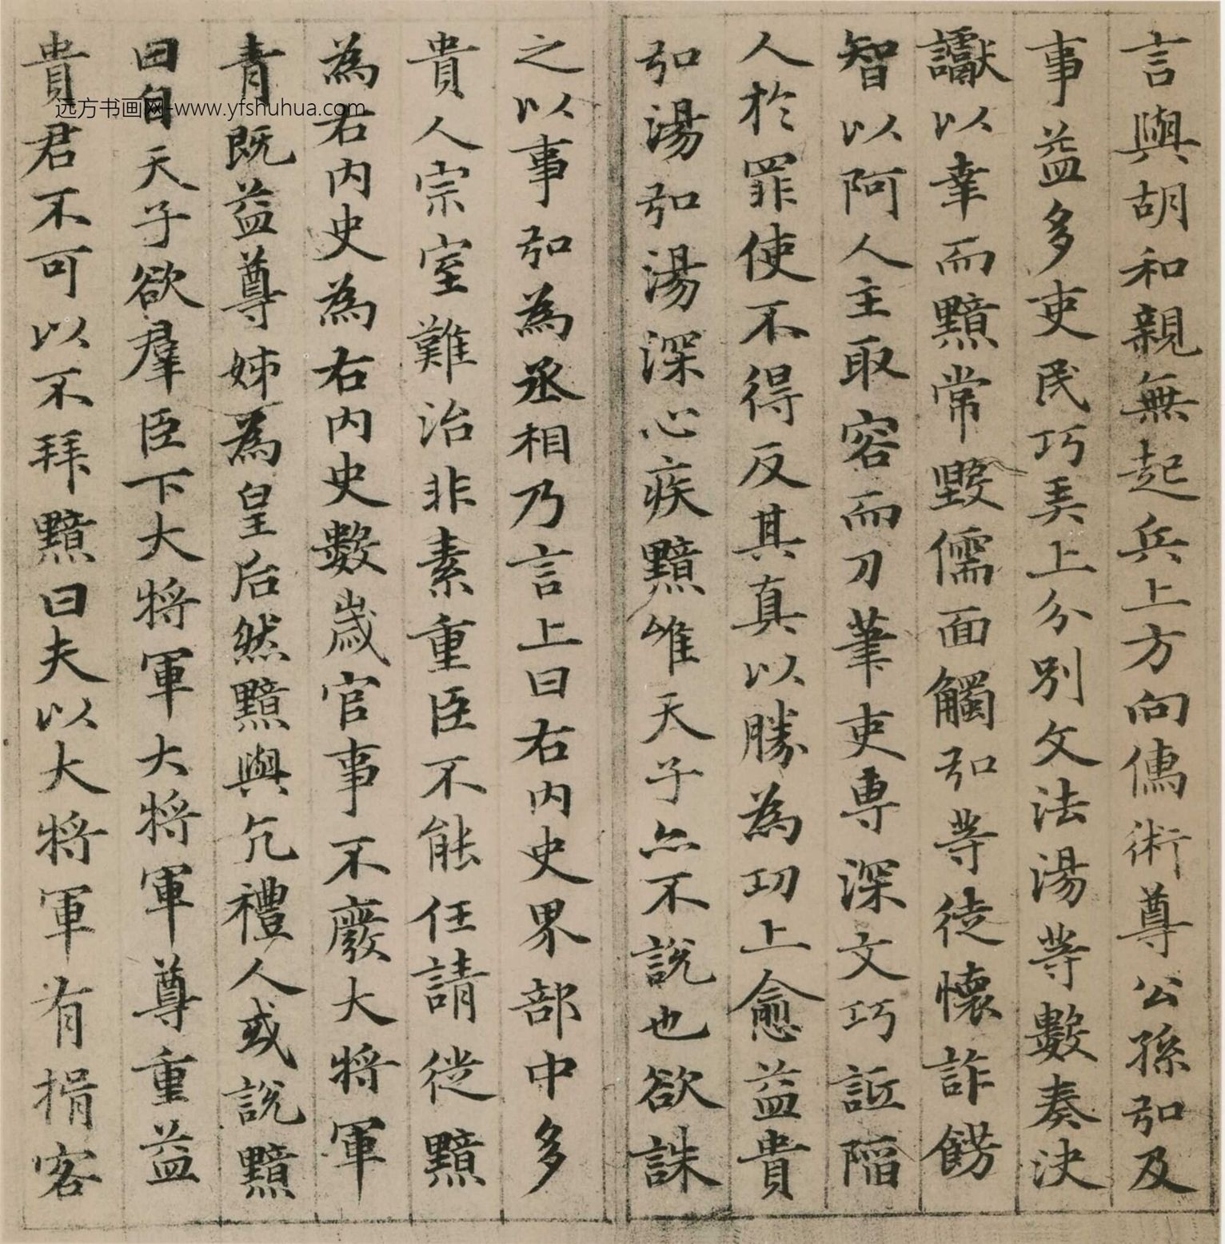 言與胡和親無起兵上方向儁術尊公孫弘及
事益多吏民巧弄上分別文法湯等數奏決
讞以幸而黯常毀儒面觸弘等徒懷詐餝
智以阿人主取容而刀筆吏專深文巧詆陷
人於罪使不得反其真以勝為功上愈益貴
弘湯弘湯深心疾黯唯天子亦不說也欲誅
之以事弘為丞相乃言上曰右內史界部中多
貴人宗室難治非素重臣不能任請徙黯
為右內史為右內史數歲官事不廢大將軍
青既益尊姊為皇后然黯與亢禮人或說黯
曰自天子欲羣臣下大將軍大將軍尊重益
貴君不可以不拜黯曰夫以大將軍有揖客
远方书画网-www.yfshuhua.com